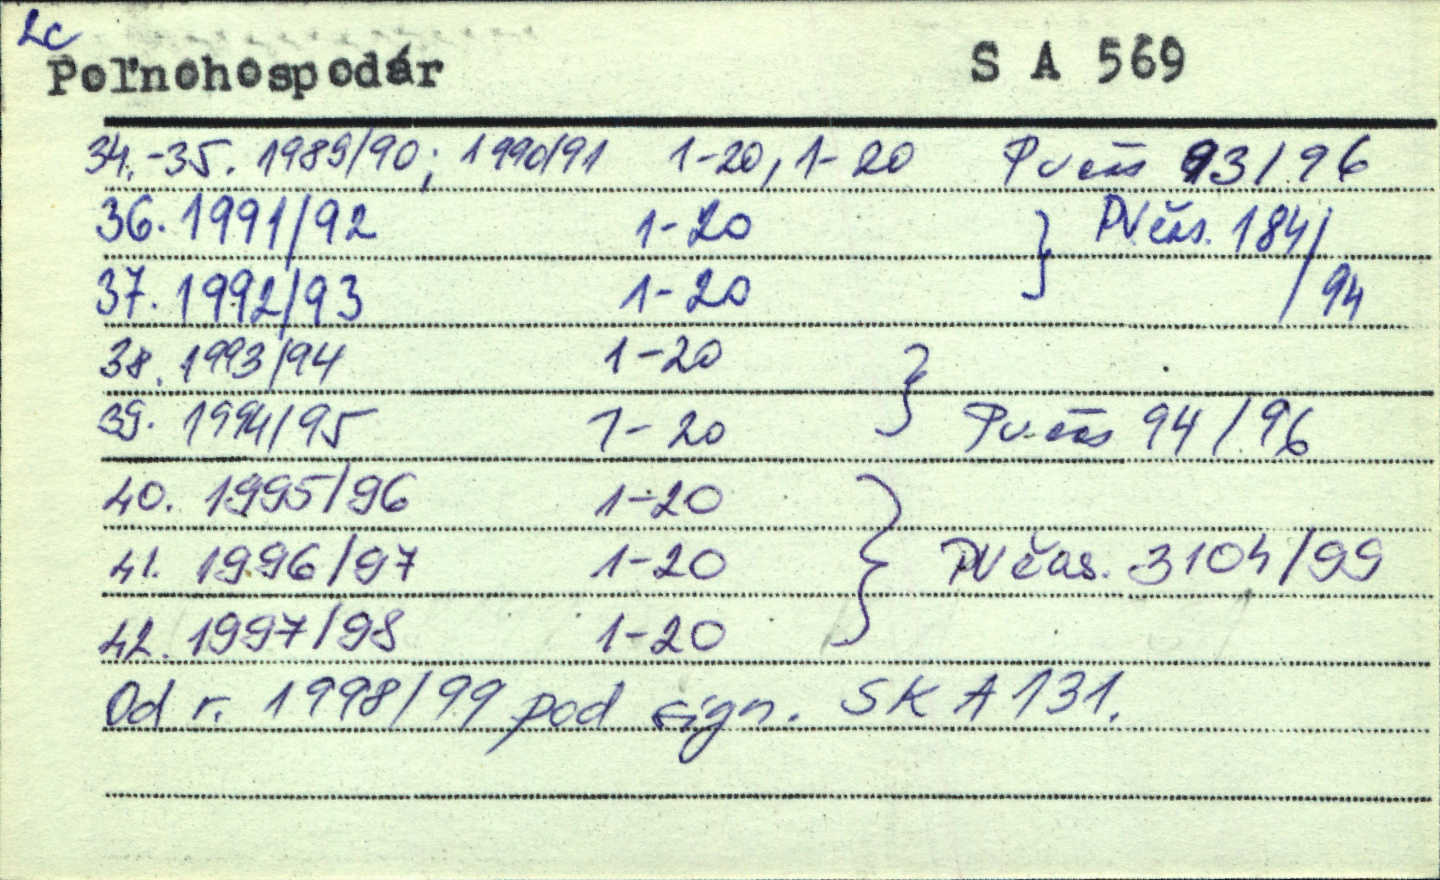 2c
Poľnohospodár S A 569
34.-35. 1989/90; 1990/91 1-20, 1-20 PVčas 93/96
36. 1991/92 1-20 } PVčas. 184/
37. 1992/93 1-20 /94
38. 1993/94 1-20 }
39. 1994/95 1-20 PVčas 94/96
40. 1995/96 1-20 }
41. 1996/97 1-20 PVčas. 3104/99
42. 1997/98 1-20
Od r. 1998/99 pod sign. SK A 131.